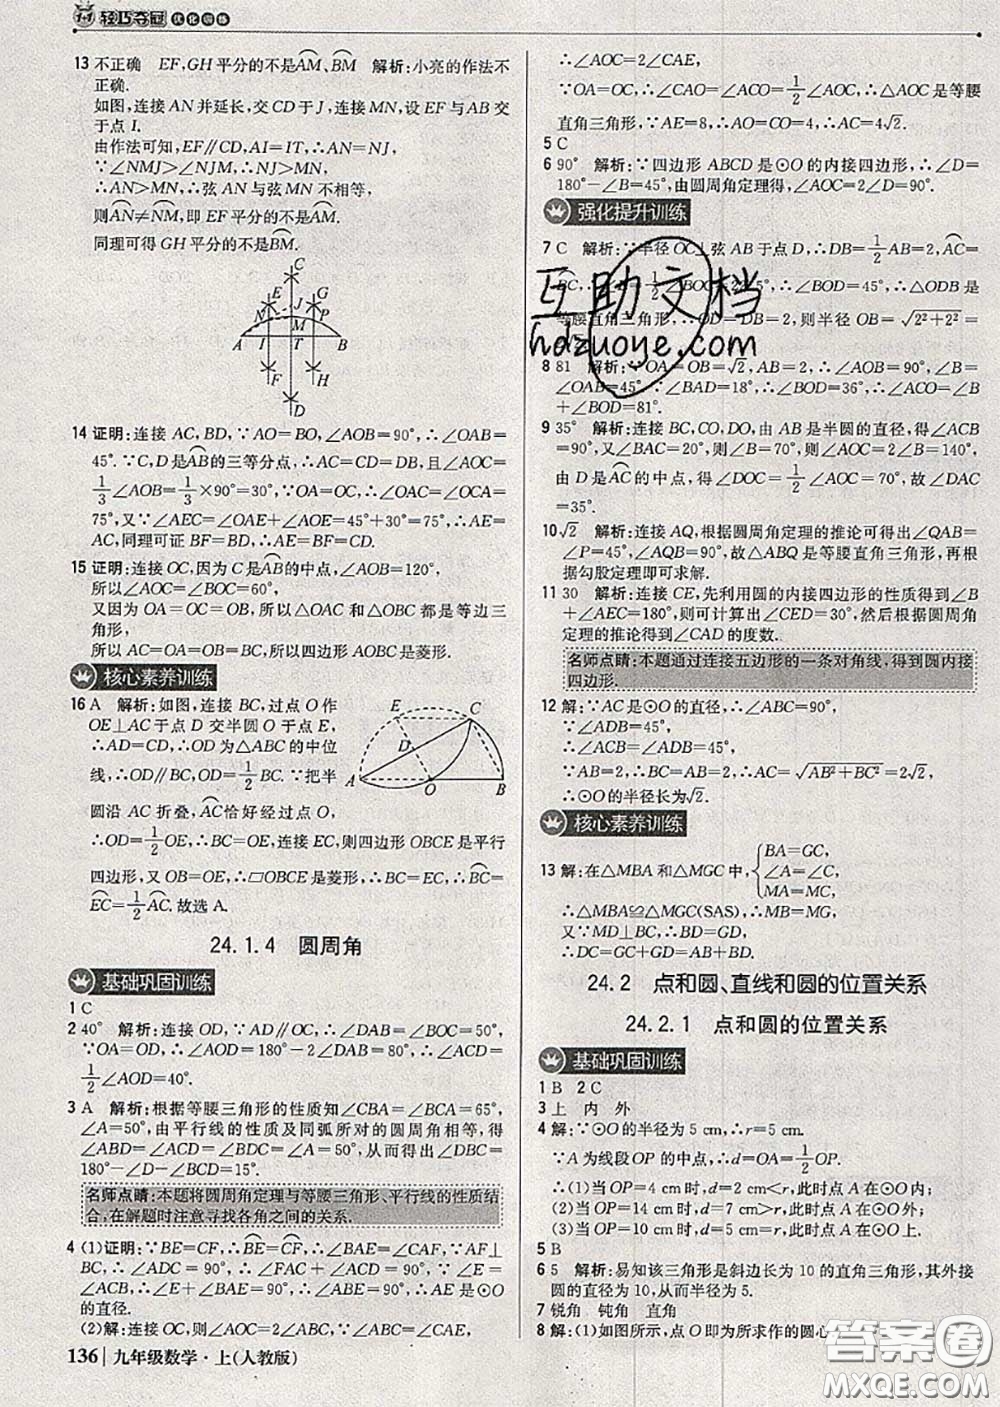 1+1 轻巧夺冠 优化训练
13 不正确 EF,GH平分的不是AM,BM 解析:小亮的作法不
正确.
如图,连接AN并延长,交CD于J,连接MN,设EF与AB交
于点I.
由作法可知,EF∥CD,AI=IT,∴AN=NJ,
∵∠NMJ>∠NJM,∴NJ>MN,
∴AN>MN,∴弦AN与弦MN不相等,
则AN≠NM,即EF平分的不是AM.
同理可得GH平分的不是BM.
C
E J G
N M P
A I T B
F H
D
14 证明:连接AC,BD,∵AO=BO,∠AOB=90°,∴∠OAB=
45°.∵C,D是AB的三等分点,∴AC=CD=BD,∴∠AOC=
1/3∠AOB=1/3×90°=30°,∵OA=OC,∴∠OAC=∠OCA=
75°,又∵∠AEC=∠OAE+∠AOE=45°+30°=75°,∴AE=
AC,同理可证BF=BD,∴AE=BF=CD.
15 证明:连接OC,因为C是AB的中点,∠AOB=120°,
所以∠AOC=∠BOC=60°,
又因为OA=OC=OB,所以△OAC和△OBC都是等边三
角形,
所以OA=AC=CB=OB,所以四边形AOBC是菱形.
核心素养训练
16 A 解析:如图,连接BC,过点O作
OE⊥AC于点D交半圆O于点E,
∴AD=CD,∴OD为△ABC的中位
线,∴OD∥BC,OD=1/2BC.∵把半
圆沿AC折叠,AC恰好经过点O,
∴OD=1/2OE,∴BC=OE,连接EC,则四边形OBCE是平行
四边形,又OB=OE,∴▱OBCE是菱形,∴BC=CE,∴BC=
EC=1/2AC.故选A.
E C
D
A O B
24.1.4 圆周角
基础巩固训练
1 C
2 40° 解析:连接OD,∵AD∥OC,∴∠ODA=∠BOC=50°,
∵OA=OD,∴∠AOD=180°-2∠ODA=80°,∴∠ABD=
1/2∠AOD=40°.
3 A 解析:根据等腰三角形的性质知∠CBA=∠BCA=65°,
∠A=50°,由平行线的性质及同弧所对的圆周角相等,得
∠ABD=∠ACD=∠A=50°,从而得出∠DBC=
180°-∠D-∠BCD=15°.
名师点睛:本题将圆周角定理与等腰三角形、平行线的性质结
合,在解题时注意寻找各角之间的关系.
4 (1)证明:∵BE=CF,∴BE=CF,∴∠BAE=∠CAF,∵AF⊥
BC,∴∠ADC=90°,∴∠FAC+∠ACD=90°,∵∠E=
∠ACB,∴∠E+∠BAE=90°,∴∠ABE=90°,∴AE是⊙O
的直径.
(2)解:连接OC,则∠AOC=2∠ABC,∵∠ABC=∠CAE,
136 九年级数学·上(人教版)
∴∠AOC=2∠CAE,
∵OA=OC,∴∠CAO=∠ACO=1/2∠AOC,∴△AOC是等腰
直角三角形,∵AE=8,∴AO=CO=4,∴AC=4√2.
5 C
6 90° 解析:∵四边形ABCD是⊙O的内接四边形,∴∠D=
180°-∠B=45°,由圆周角定理得,∠AOC=2∠D=90°.
强化提升训练
7 C 解析:∵半径OC⊥弦AB于点D,∴DB=1/2AB=2,AC=
BC,∴∠E=1/2∠BOC=22.5°,∴∠BOD=45°,∴△ODB是
等腰直角三角形,∴OD=DB=2,则半径OB=√2²+2²=
8 81 解析:∵OA=OB=√2,AB=2,∴∠AOB=90°,∴∠B=
∠OAB=45°,∵∠BAD=18°,∴∠BOD=36°,∴∠ACO=∠B+
∠BOD=81°.
9 35° 解析:连接BC,CO,DO,由AB是半圆的直径,得∠ACB
=90°,又∠BAC=20°,则∠B=70°,则∠AOC=2∠B=140°,
由D是AC的中点,得∠DOC=1/2∠AOC=70°,故∠DAC
=35°.
10 √2 解析:连接AQ,根据圆周角定理的推论可得出∠QAB=
∠P=45°,∠AQB=90°,故△ABQ是等腰直角三角形,再根
据勾股定理即可求解.
11 30 解析:连接CE,先利用圆的内接四边形的性质得到∠B
+∠AEC=180°,则可计算出∠CED=30°,然后根据圆周角
定理的推论得到∠CAD的度数.
名师点睛:本题通过连接五边形的一条对角线,得到圆内接
四边形.
12 解:∵AC是⊙O的直径,∴∠ABC=90°,
∵∠ADB=45°,
∴∠ACB=∠ADB=45°,
∵AB=2,∴BC=AB=2,∴AC=√AB²+BC²=2√2,
∴⊙O的半径长为√2.
核心素养训练
13 解:在△MBA和△MGC中,{BA=GC,
∠A=∠C,
MA=MC,
∴△MBA≌△MGC(SAS),∴MB=MG,
又∵MD⊥BC,∴BD=GD,
∴DC=GC+GD=AB+BD.
24.2 点和圆、直线和圆的位置关系
24.2.1 点和圆的位置关系
基础巩固训练
1 B 2 C
3 上 内 外
4 解:∵⊙O的半径为5 cm,∴r=5 cm.
∵A为线段OP的中点,∴d=OA=1/2OP.
∴(1)当OP=4 cm时,d=2<r,此时点A在⊙O内;
(2)当OP=14 cm时,d=7 cm>r,此时点A在⊙O外;
(3)当OP=10 cm时,d=5 cm=r,此时点A在⊙O上.
5 B
6 5 解析:易知该三角形是斜边长为10的直角三角形,其外接
圆的直径为10,从而半径为5.
7 锐角 钝角 直角
8 解:(1)如图所示,点O即为所求作的圆心
互助文档
hdzuoye.com
答案圈
MXQE.COM